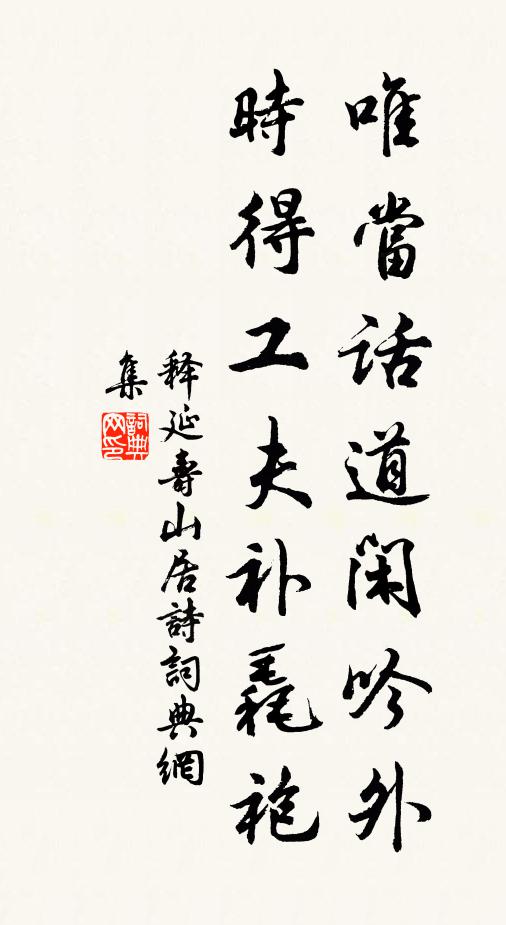 唯當話道閑吟外
時得工夫补毳袍
释延壽山居詩詞典網
集
詞典
网印